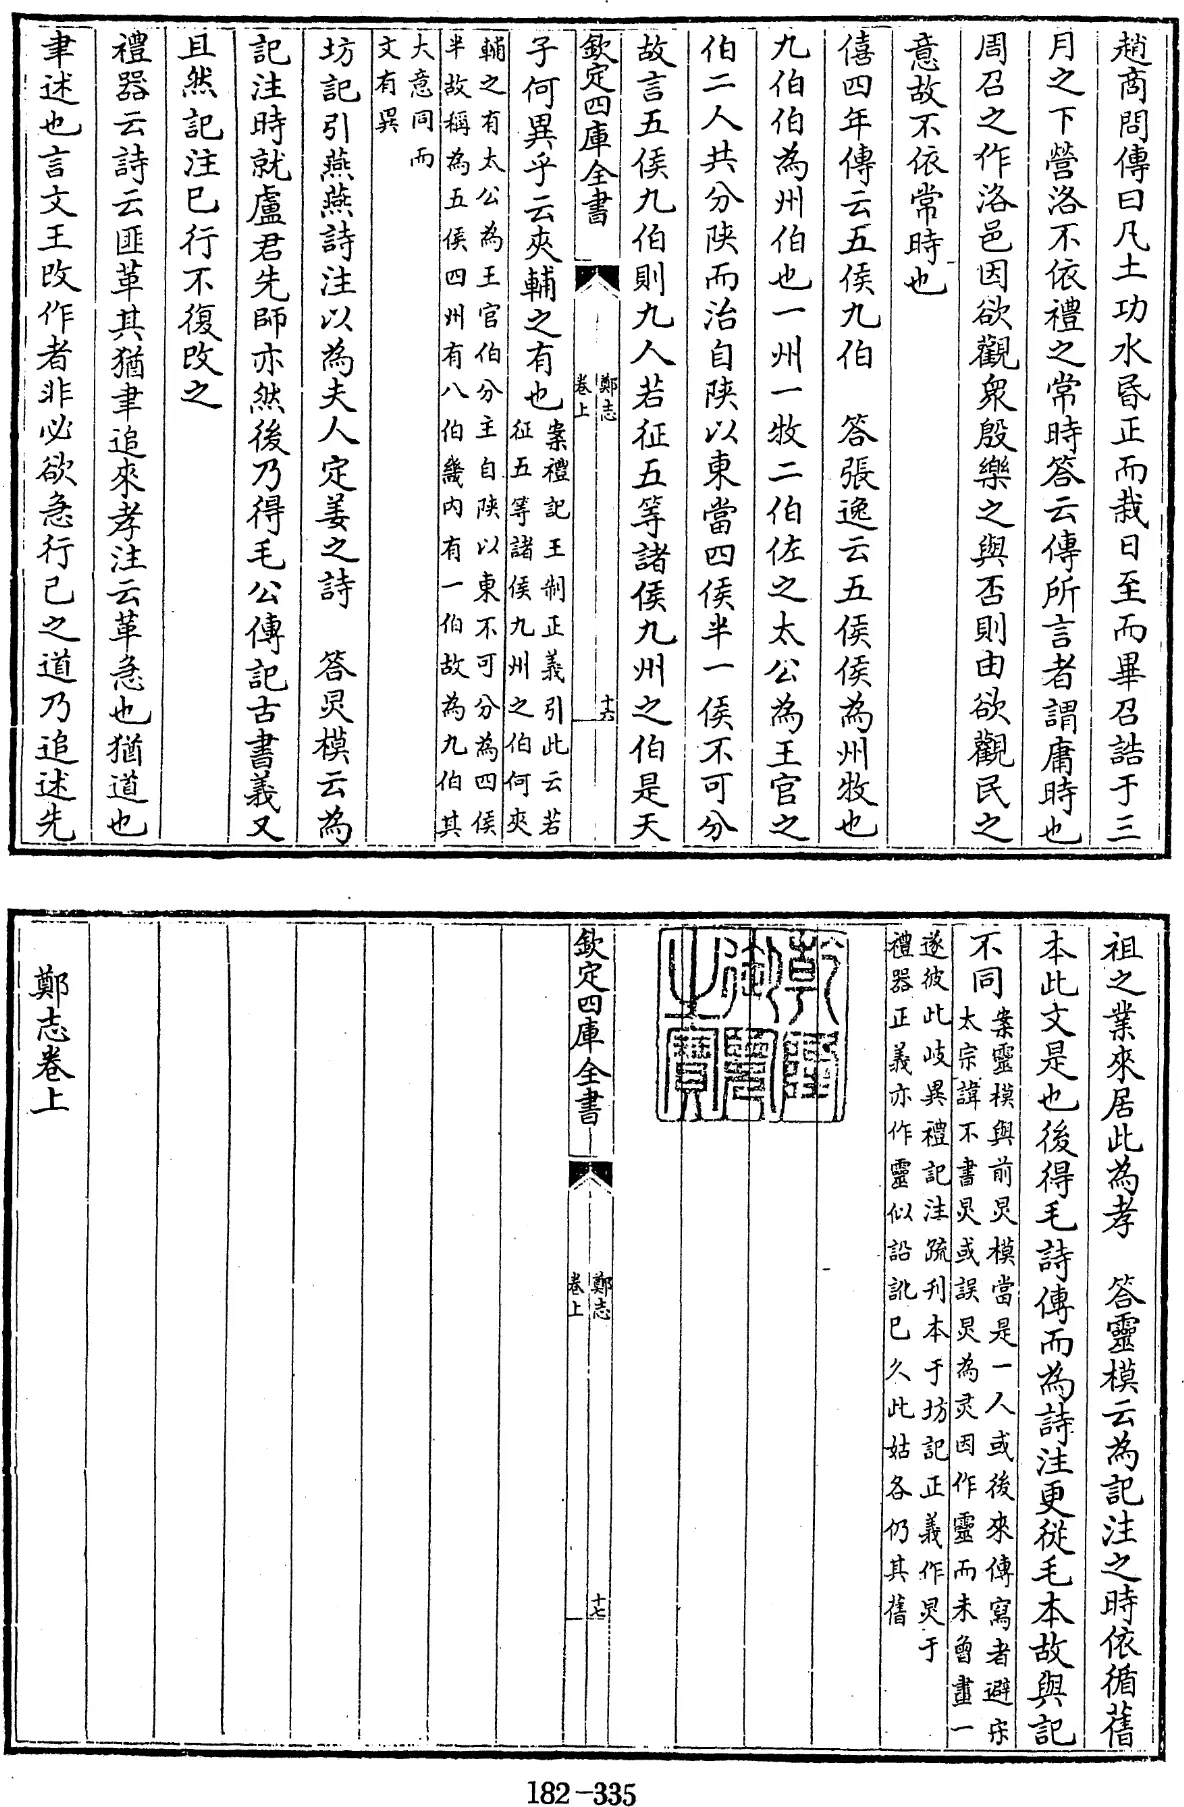 趙商問傳曰凡土功水昏正而栽日至而畢召誥于三
月之下營洛不依禮之常時答云傳所言者謂庸時也
周召之作洛邑因欲觀衆殷樂之與否則由欲觀民之
意故不依常時也
僖四年傳云五侯九伯　答張逸云五侯侯為州牧也
九伯伯為州伯也一州一牧二伯佐之太公為王官之
伯二人共分陜而治自陜以東當四侯半一侯不可分
故言五侯九伯則九人若征五等諸侯九州之伯是天
欽定四庫全書
鄭志
卷上
十六
子何異乎云夾輔之有也
案禮記王制正義引此云若
征五等諸侯九州之伯何夾
輔之有太公為王官伯分主自陜以東不可分為四侯
半故稱為五侯四州有八伯畿内有一伯故為九伯其
大意同而
文有異
坊記引燕燕詩注以為夫人定姜之詩　答炅模云為
記注時就盧君先師亦然後乃得毛公傳記古書義又
且然記注已行不復改之
禮器云詩云匪革其猶聿追來孝注云革急也猶道也
聿述也言文王改作者非必欲急行已之道乃追述先
祖之業來居此為孝　答靈模云為記注之時依循舊
本此文是也後得毛詩傳而為詩注更從毛本故與記
不同
案靈模與前炅模當是一人或後來傳寫者避宋
太宗諱不書炅或誤炅為灵因作靈而未曾畫一
遂彼此岐異禮記注疏刋本于坊記正義作炅于
禮器正義亦作靈似訟訛已久此姑各仍其舊
乾隆御覽之寶
欽定四庫全書
鄭志
卷上
十七
鄭志卷上
182-335